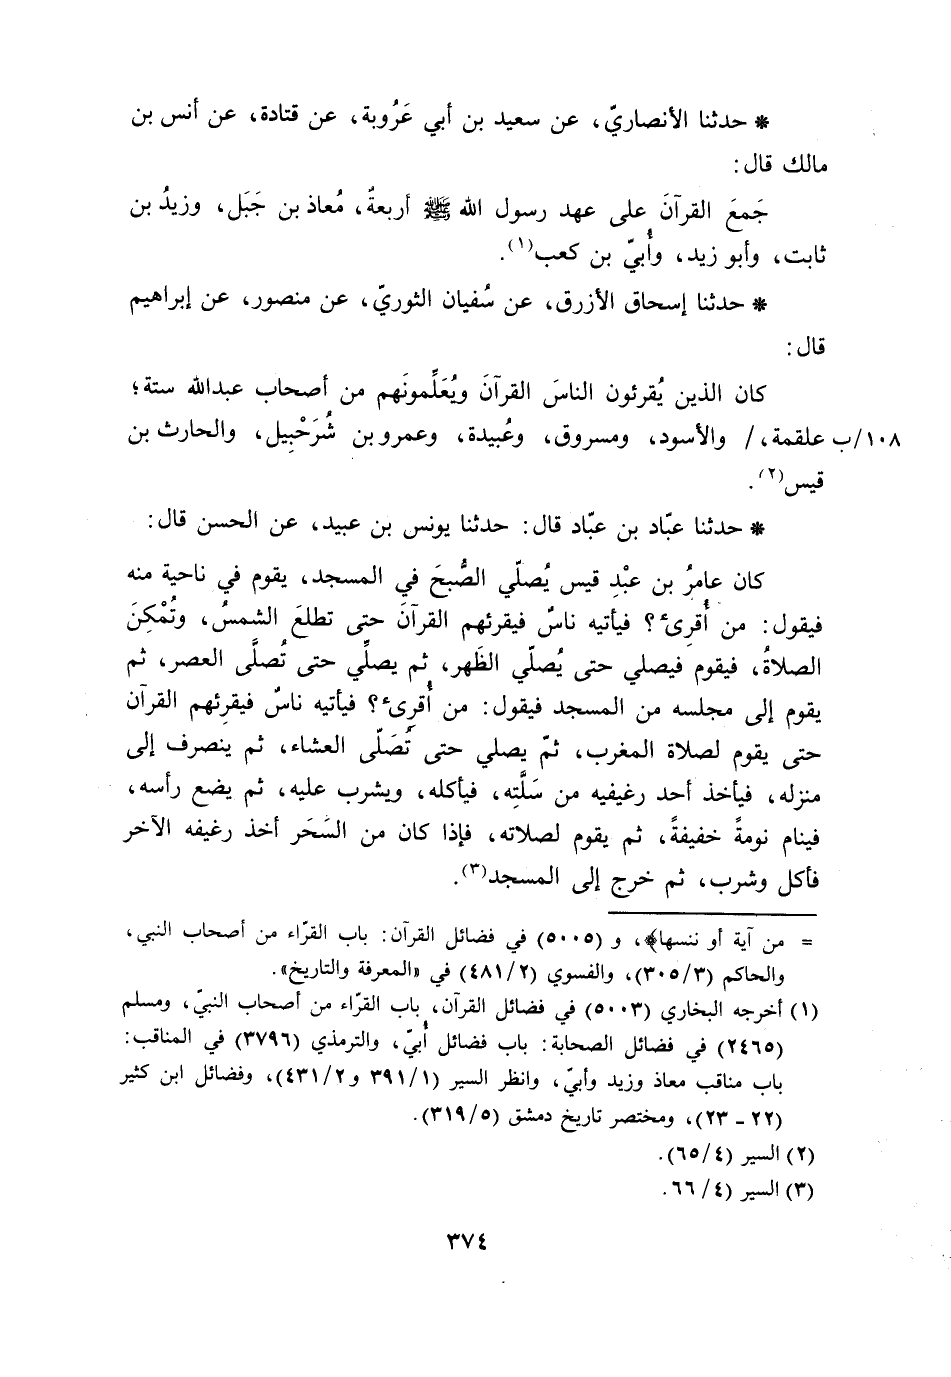 * حدثنا الأنصاريّ، عن سعيد بن أبي عَرُوبة، عن قتادة، عن أنس بن
مالك قال:
جَمعَ القرآنَ على عهد رسول الله ﷺ أربعةٌ، مُعاذ بن جَبَل، وزيدُ بن
ثابت، وأبو زيد، وأُبيّ بن كعب(١).
* حدثنا إسحاق الأزرق، عن سُفيان الثوريّ، عن منصور، عن إبراهيم
قال:
كان الذين يُقرئون الناسَ القرآنَ ويُعَلِّمونَهم من أصحاب عبدالله ستة؛
١٠٨/ب علقمة،/ والأسود، ومسروق، وعُبيدة، وعمرو بن شُرَحْبِيل، والحارث بن
قيس(٢).
* حدثنا عبّاد بن عبّاد قال: حدثنا يونس بن عبيد، عن الحسن قال:
كان عامرُ بن عبْدِ قيس يُصلّي الصُّبحَ في المسجد، يقوم في ناحية منه
فيقول: من أُقرِىء؟ فيأتيه ناسٌ فيقرئهم القرآنَ حتى تطلعَ الشمسُ، وتُمْكِنَ
الصلاةُ، فيقوم فيصلي حتى يُصلّي الظَهر، ثم يصلّي حتى تُصلَّى العصر، ثم
يقوم إلى مجلسه من المسجد فيقول: من أُقرِىء؟ فيأتيه ناسٌ فيقرِئهم القرآن
حتى يقوم لصلاة المغرب، ثمّ يصلي حتى تُصَلّى العشاء، ثم ينصرف إلى
منزله، فيأخذ أحد رغيفيه من سَلَّتِه، فيأكله، ويشرب عليه، ثم يضع رأسه،
فينام نومةً خفيفةً، ثم يقوم لصلاته، فإذا كان من السَّحَر أخذ رغيفه الآخر
فأكل وشرب، ثم خرج إلى المسجد(٣).
= من آية أو ننسها﴾، و (٥٠٠٥) في فضائل القرآن: باب القرّاء من أصحاب النبي،
والحاكم (٣٠٥/٣)، والفسوي (٤٨١/٢) في «المعرفة والتاريخ».
(١) أخرجه البخاري (٥٠٠٣) في فضائل القرآن، باب القرّاء من أصحاب النبيّ، ومسلم
(٢٤٦٥) في فضائل الصحابة: باب فضائل أُبيّ، والترمذي (٣٧٩٦) في المناقب:
باب مناقب معاذ وزيد وأبيّ، وانظر السير (٣٩١/١ و٤٣١/٢)، وفضائل ابن كثير
(٢٢ - ٢٣)، ومختصر تاريخ دمشق (٣١٩/٥).
(٢) السير (٦٥/٤).
(٣) السير (٦٦/٤.
٣٧٤